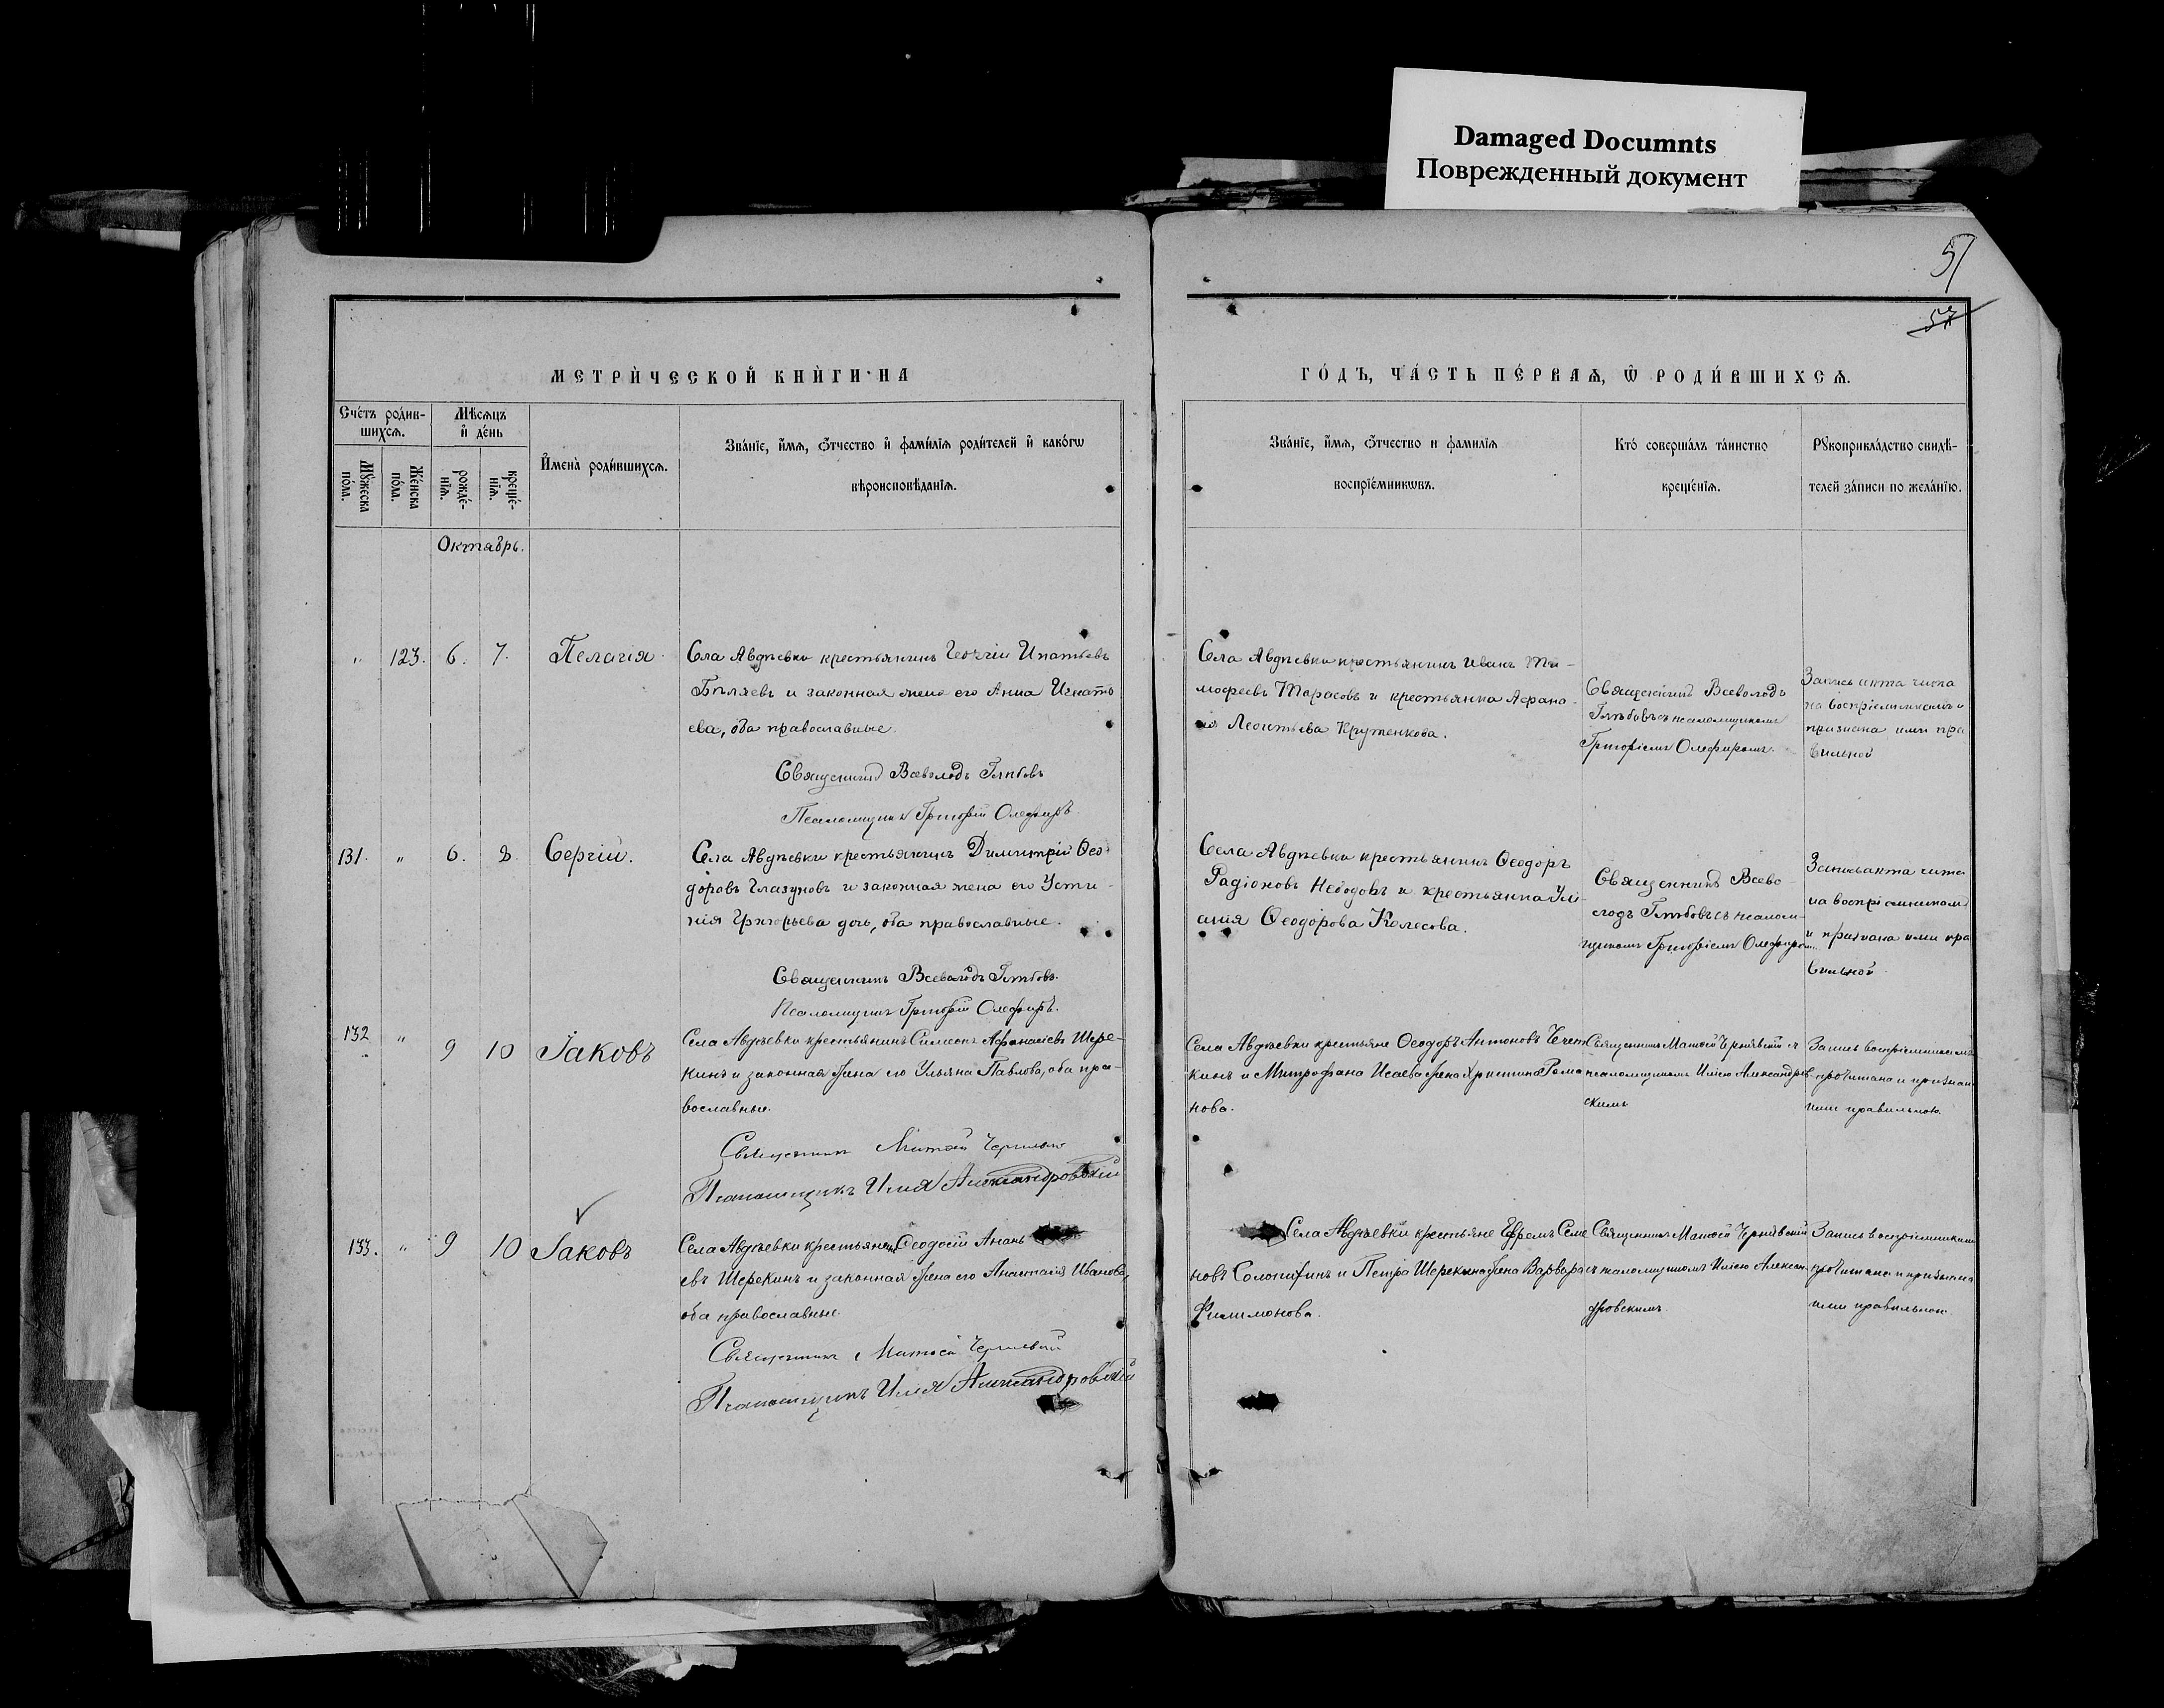 Damaged Documnts
Поврежденный документ
51
МЕТРИЧЕСКОЙ КНИГИ НА
ГОДЪ, ЧАСТЬ ПЕРВАѦ, Ѿ РОДИВШИХСѦ.
Счетъ родив-
шихсѧ.
Мꙋжеска пола.
Женска пола.
Мѣсѧцъ
и день
рожде-
нїѧ.
креще-
нїѧ.
Имена родившихсѧ.
Званїе, имѧ, ѿчество и фамилїѧ родителей и какогѡ
вѣроисповѣданїѧ.
Званїе, имѧ, ѿчество и фамилїѧ
воспрїемникѡвъ.
Кто совершалъ таинство
крещенїѧ.
Рꙋкоприкладство свидѣ-
телей записи по желанїю.
Октябрь.
" 123. 6. 7. Пелагія
Села Авдѣевки крестьянинъ Георгій Ипатьевъ
Бѣляевъ и законная жена его Анна Игнать
ева, оба православные.
Священникъ Всеволодъ Глѣбовъ
Псаломщикъ Григорій Олефиръ
Села Авдѣевки крестьянинъ Иванъ Ти-
мофеевъ Тарасовъ и крестьянка Афана-
ия Леонтьева Крутенкова.
Священникъ Всеволодъ
Глѣбовъ съ псаломщикомъ
Григоріемъ Олефиромъ.
Запись акта чита
на воспріемникамъ и
признана ими пра
вильной
131. " 6. 8. Сергій.
Села Авдѣевки крестьянинъ Димитрій Ѳео-
доровъ Глазуновъ и законная жена его Усти-
нія Григорьева дочь, оба православные.
Священникъ Всеволодъ Глѣбовъ.
Псаломщикъ Григорій Олефиръ.
Села Авдѣевки крестьянинъ Ѳеодоръ
Радіоновъ и крестьянка Улі-
анія Ѳеодорова Колесова.
Священникъ Всево
лодъ Глѣбовъ съ псалом-
щикомъ Григоріемъ Олефиромъ.
Запись акта чита
на воспріемникамъ
и признана ими пра
вильной
132 " 9 10 Іаковъ
Села Авдѣевки крестьянинъ Симеонъ Афанасіевъ Шере-
кинъ и законная жена его Ульяна Павлова, оба пра-
вославные.
Священникъ Матѳей Чернявскій
Псаломщикъ Илія Александровскій
Села Авдѣевки крестьяне Ѳеодоръ Антоновъ Чечет
кинъ и Митрофана Исаева жена Христина Рома
нова.
Священникъ Матѳей Чернявскій съ
псаломщикомъ Иліею Александров-
скимъ
Запись воспріемникамъ
прочитана и признан
ими правильною.
133. " 9 10 Іаковъ
Села Авдѣевки крестьянинъ Ѳеодосій Анань
евъ Шерекинъ и законная жена его Анастасія Иванова,
оба православные.
Священникъ Матѳей Чернявскій
Псаломщикъ Илія Александровскій
Села Авдѣевки крестьяне Ефремъ Семе
новъ Солопихинъ и Петра Шерекина жена Варвара
Филимонова.
Священникъ Матѳей Чернявскій
съ псаломщикомъ Иліею Алексан
дровскимъ.
Запись воспріемникамъ
прочитана и признана
ими правильною.